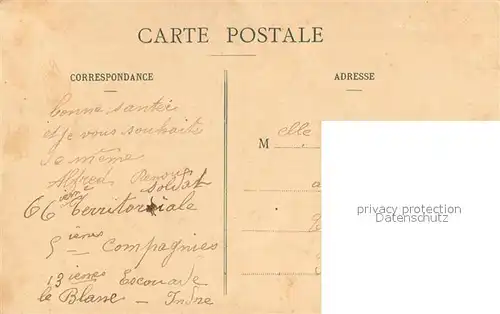 CARTE POSTALE
CORRESPONDANCE
ADRESSE
bonne santer
et je vous souhaite
de même
Alfred Renoux
soldat
66 ème Territoriale
5 ième Compagnies
13 ieme Escouade
le Blanc - Indre
M elle
privacy protection
Datenschutz